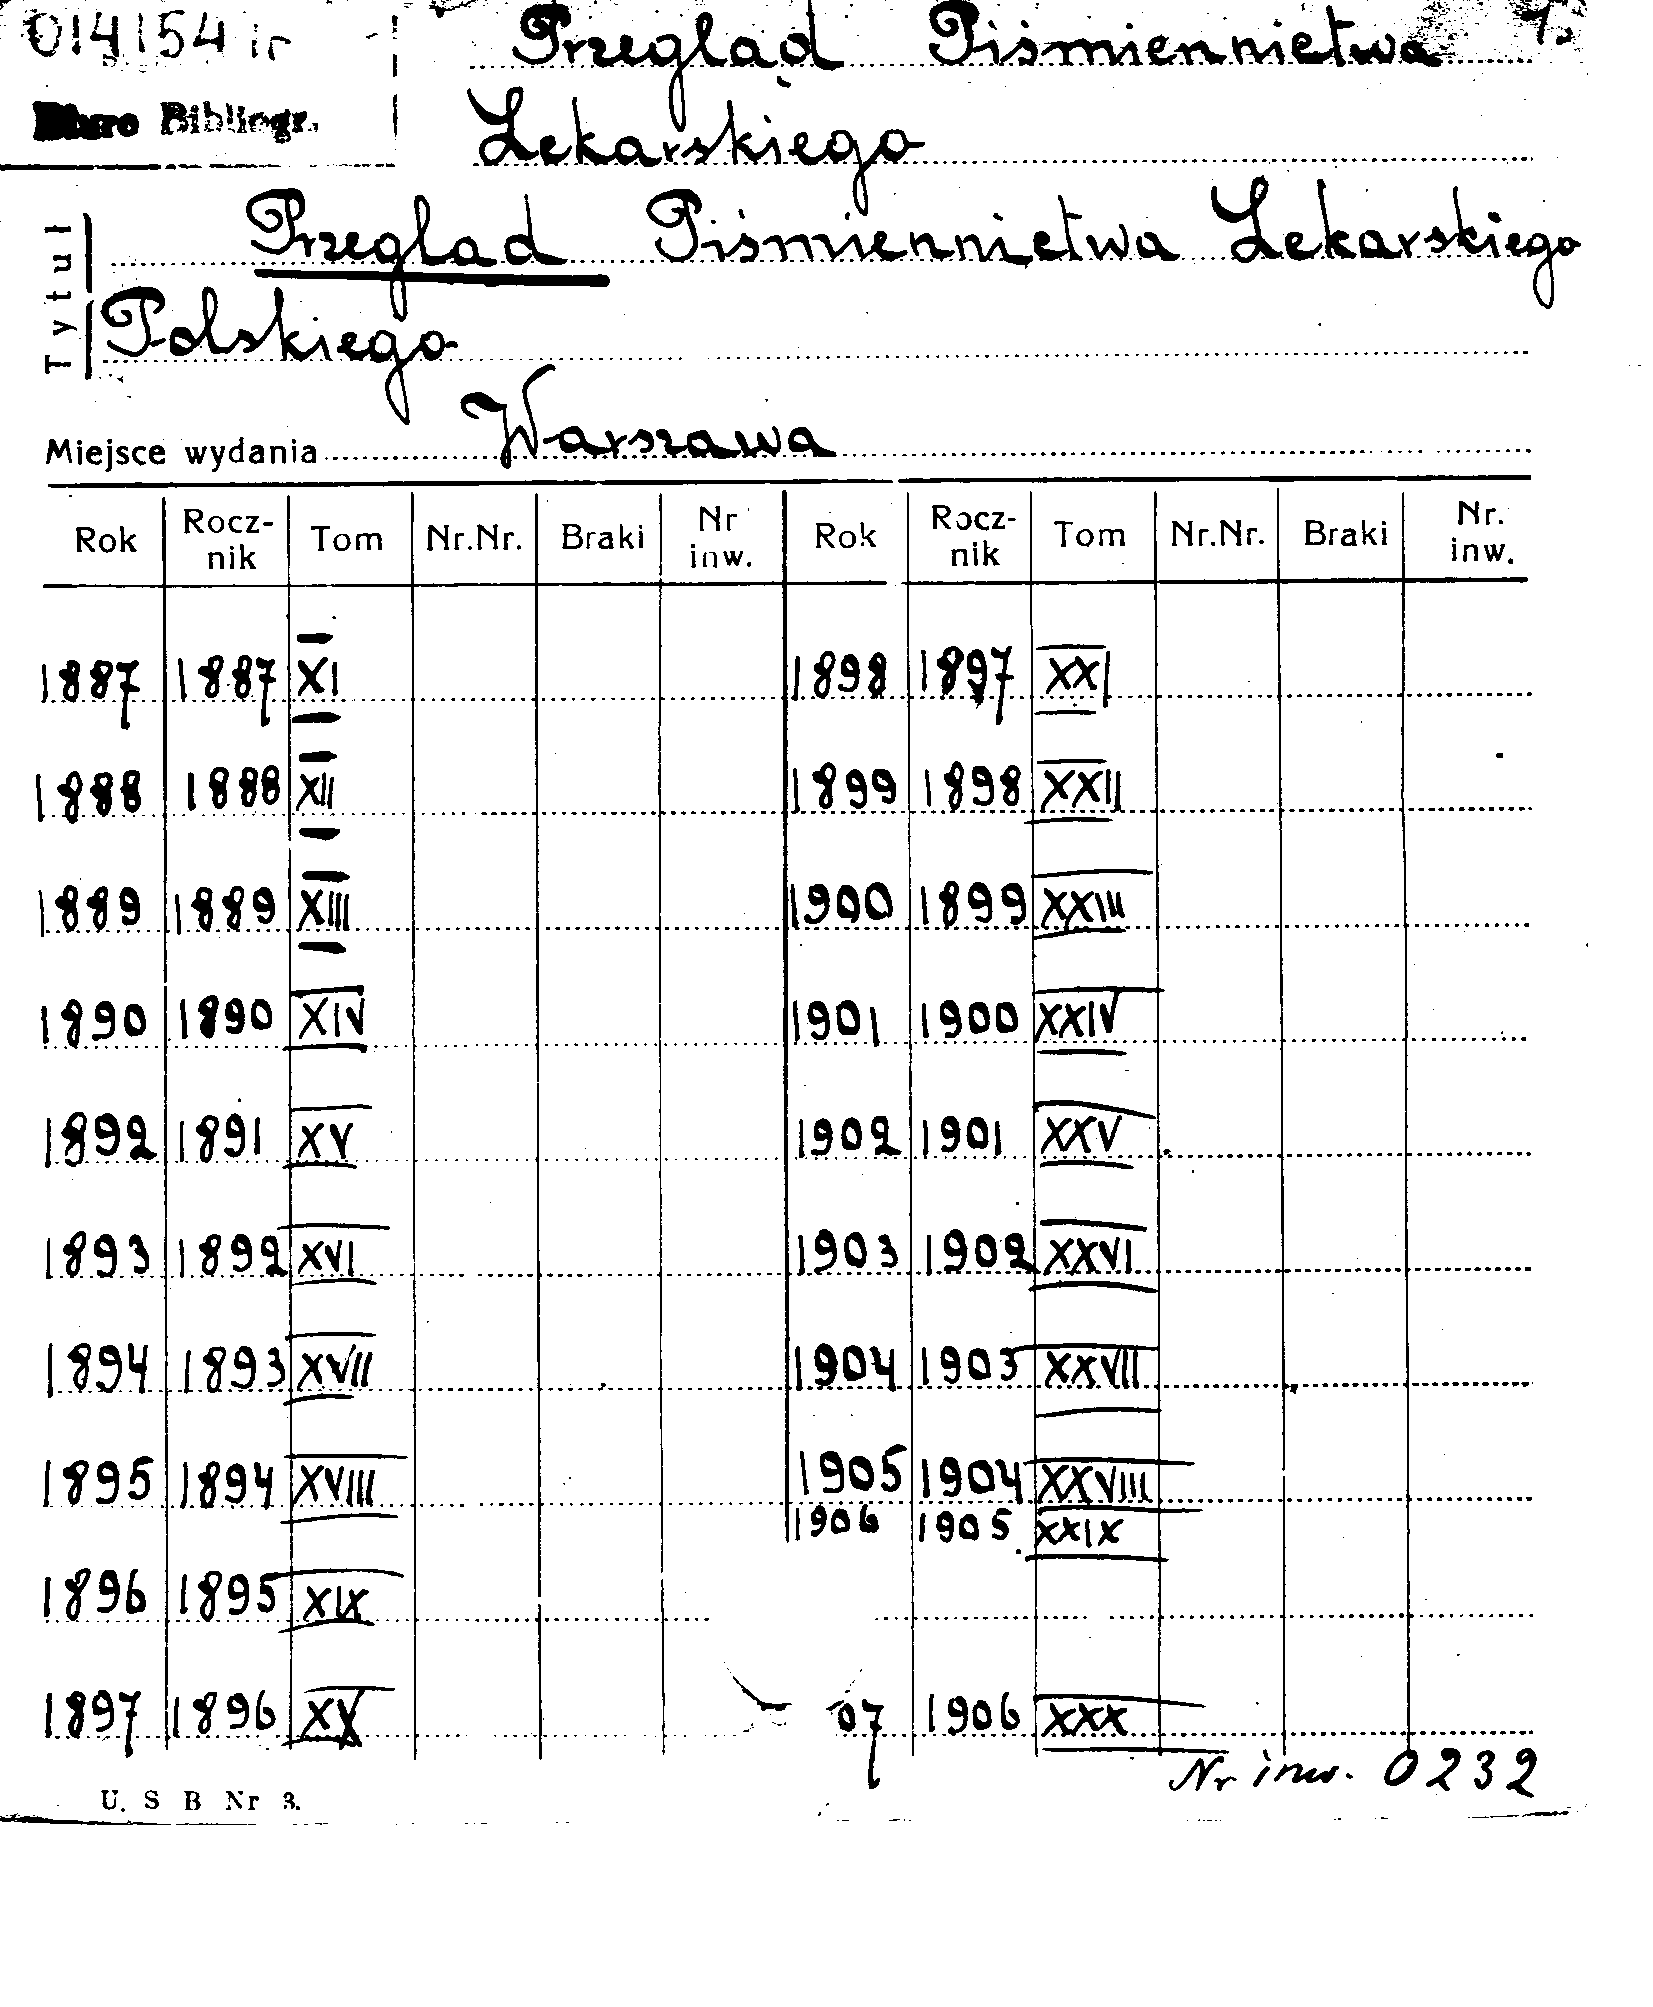 014154 ir
Biuro Bibliogr.
1.
Przegląd Piśmiennictwa
Lekarskiego
Tytuł
Przegląd Piśmiennictwa Lekarskiego
Polskiego
Miejsce wydania Warszawa
Rok Rocz-nik Tom Nr.Nr. Braki Nr inw. Rok Rocz-nik Tom Nr.Nr. Braki Nr. inw.
1887 1887 XI 1898 1897 XXI
1888 1888 XII 1899 1898 XXII
1889 1889 XIII 1900 1899 XXIII
1890 1890 XIV 1901 1900 XXIV
1892 1891 XV 1902 1901 XXV
1893 1892 XVI 1903 1902 XXVI
1894 1893 XVII 1904 1903 XXVII
1895 1894 XVIII 1905 1904 XXVIII
1906 1905 XXIX
1896 1895 XIX
1897 1896 XX 07 1906 XXX
Nr inw. 0232
U. S B Nr 3.